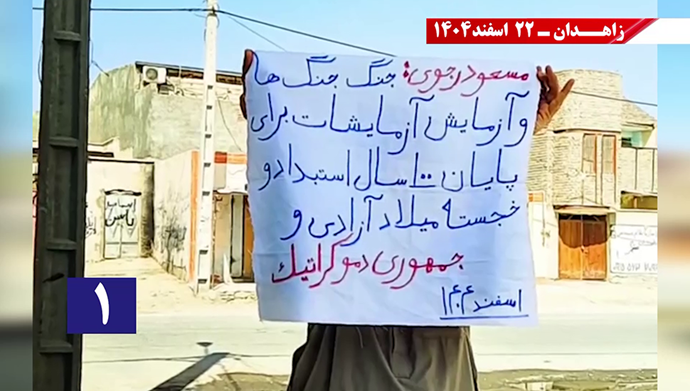 زاهـــدان ــ ۲۲ اسفند۱۴۰۴
مسعود رجوی: جنگ جنگ ها
و آزمایش آزمایشات برای
پایان ۱۰۰ سال استبداد و
خجسته میلاد آزادی و
جمهوری دموکراتیک
اسفند ۱۴۰۴
۱